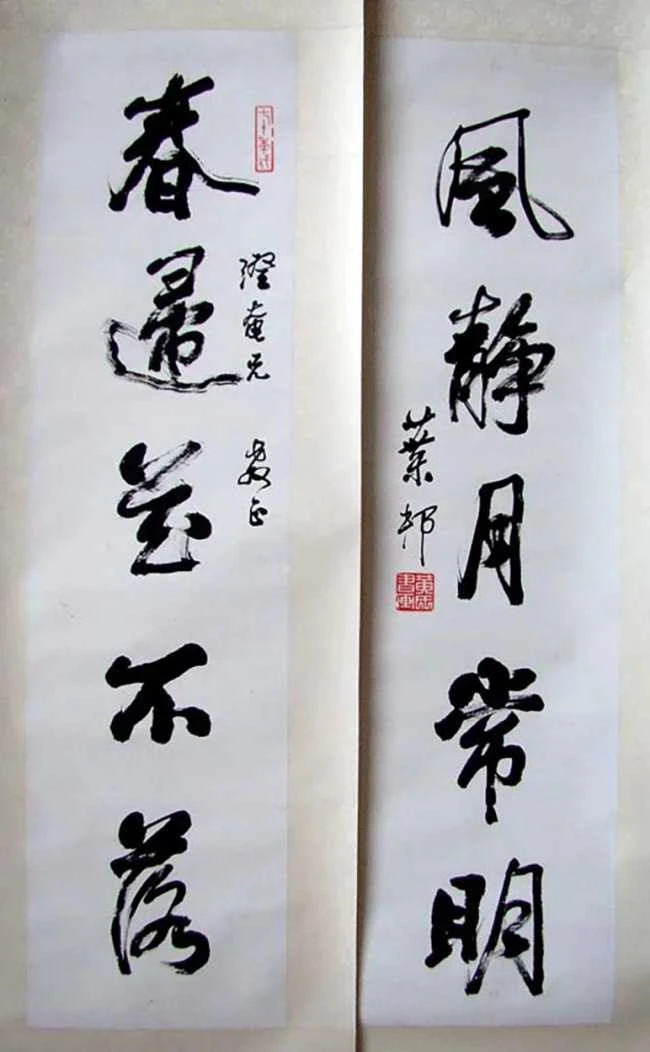 春歸花不落
澄庵兄 教正
風靜月常明
葉邨